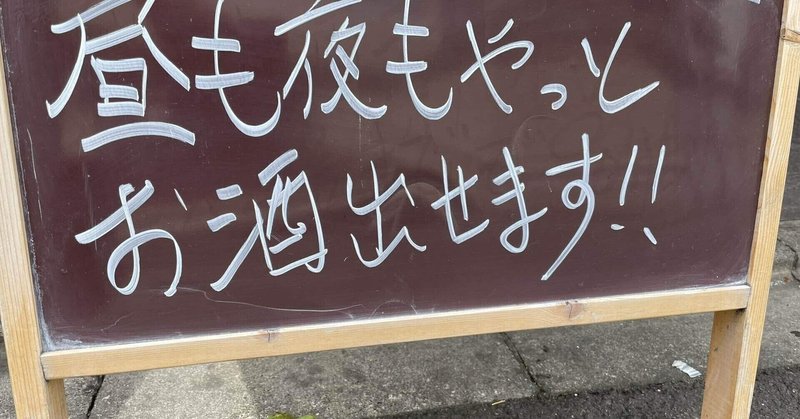 昼も夜もやっと
お酒出せます!!